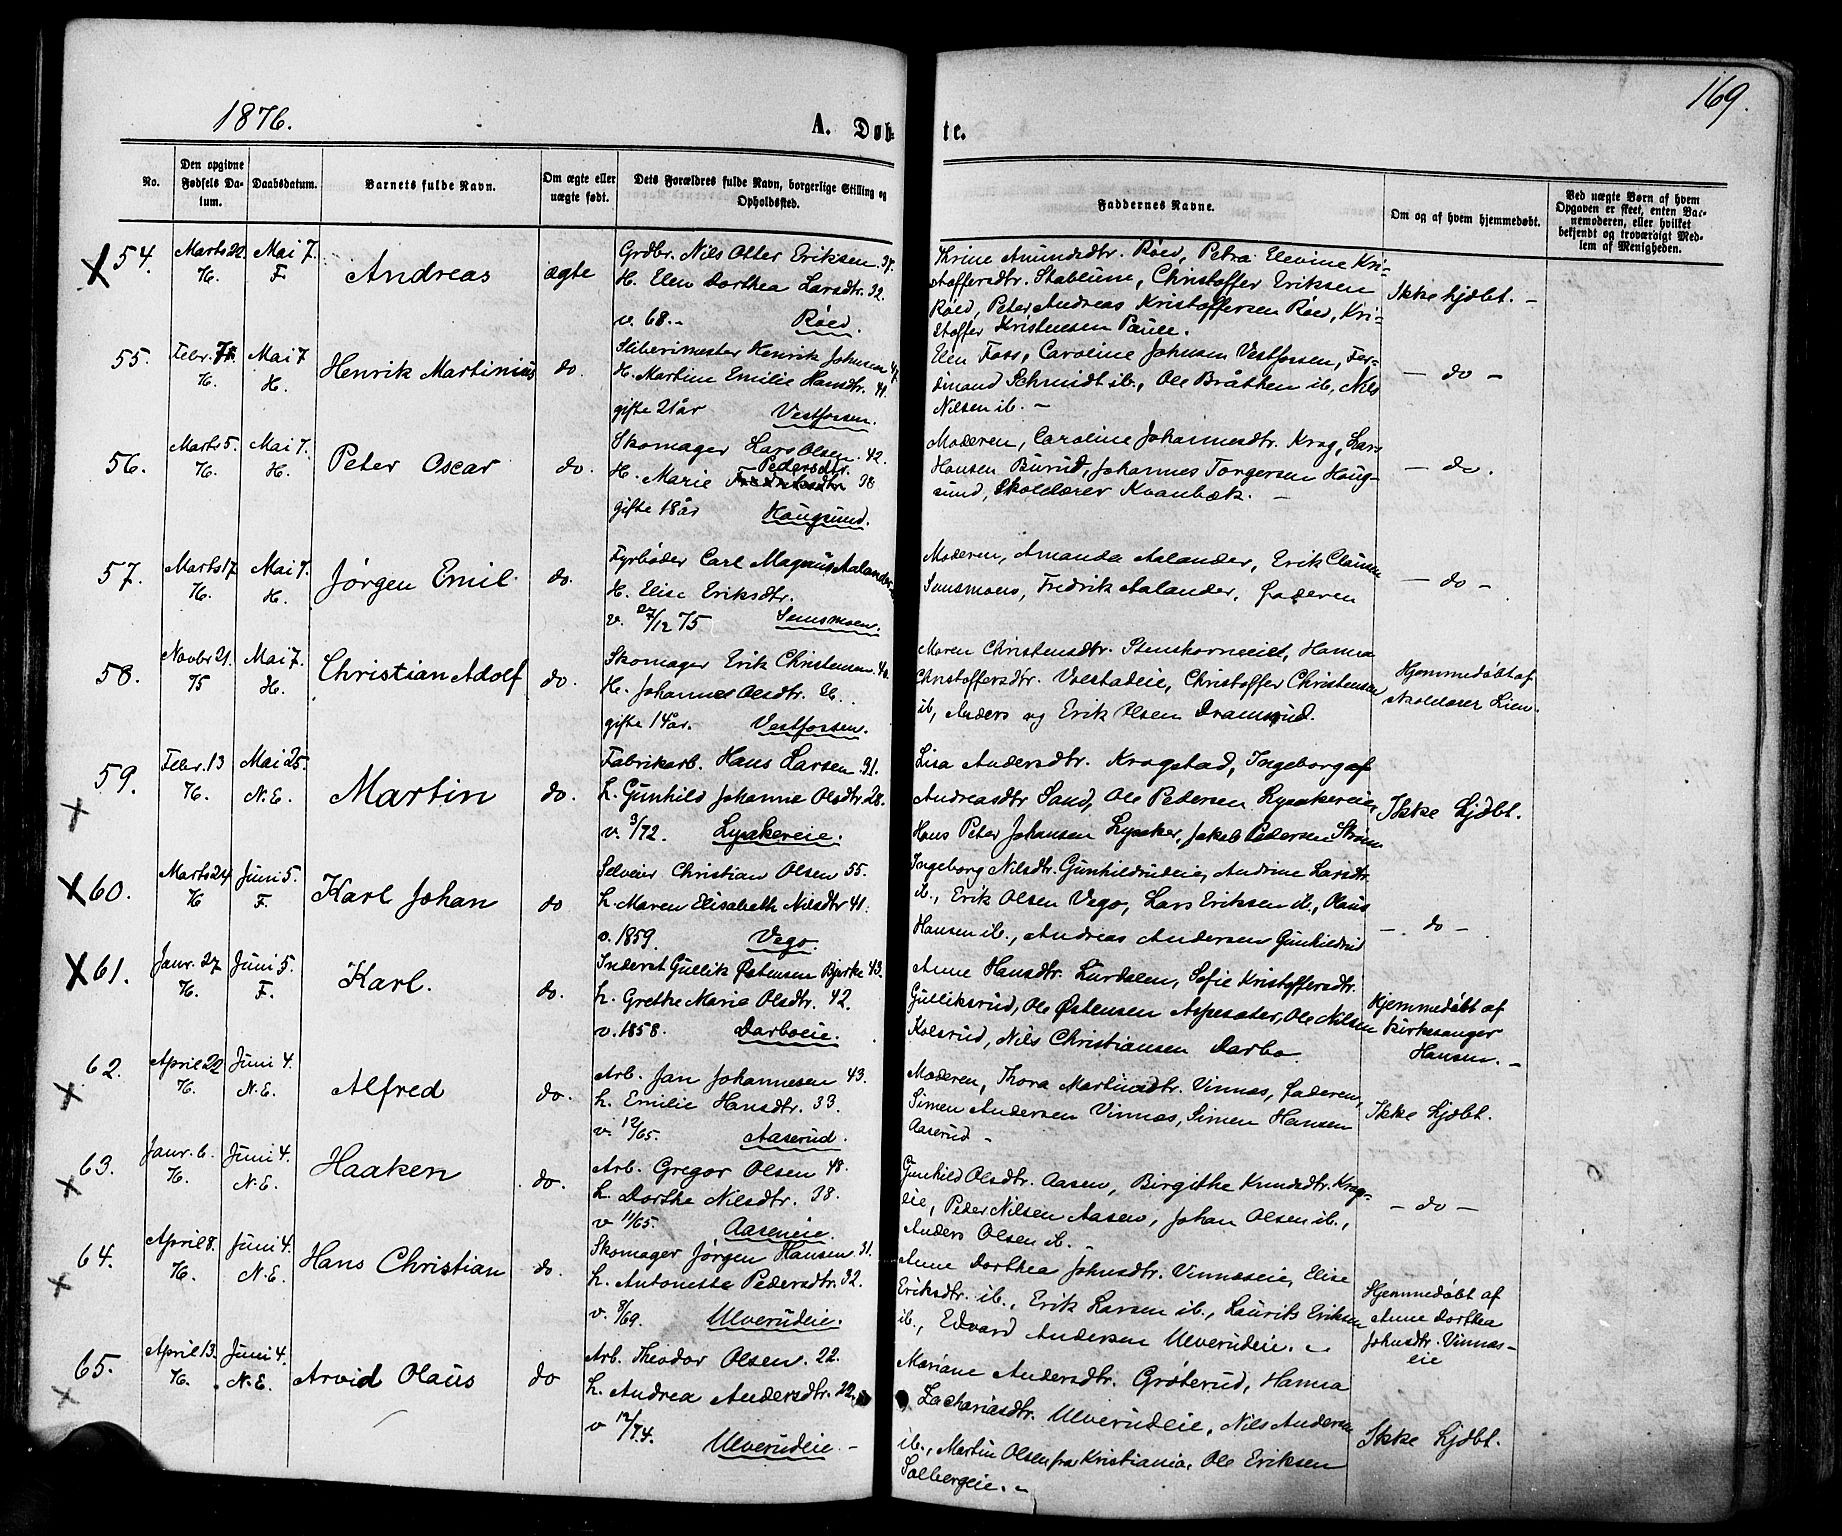 1876.
A. Døb-
te.
169.
No.
Den opgivne Fødsels Datum.
Daabsdatum.
Barnets fulde Navn.
Om ægte eller uægte født.
Dets Forældres fulde Navn, borgerlige Stilling og Opholdssted.
Faddernes Navne.
Om og af hvem hjemmedøbt.
Ved uægte Børn af hvem Opgaven er skeet, enten Barnemoderen, eller hvilket bekjendt og troværdigt Medlem af Menigheden.
54. Marts 22. H. Mai 7. F. Andreas ægte
Grdbr. Nils Otter Eriksen. 37.
H. Elen Dorthea Larsdtr. 32.
v. 68.- Røed.
Thrine Amundsdtr. Røed, Petra Elevine Kri-
stoffersdtr. Stablum, Christoffer Eriksen
Røed, Peter Andreas Kristoffersen Røed, Kri-
stoffer Kristensen
Ikke hjdbt. -
55. Febr. H. Mai 7 H. Henrik Martinius do.
Sliberimester Henrik Johnsen 47.
H. Martine Emilie Hansdtr. 41.
gifte 21 år Vestfossen.
Elen Foss, Caroline Johnsen Vestfossen, Fer-
dinand Schmidt ib., Ole Bråthen ib., Nils
Nilsen ib. -
- do -
56. Marts 5. H. Mai 7. H. Peter Oscar do.
Skomager Lars Olsen. 42.
Pedersdtr.
H. Marie 38
gifte 18 år Hougsund.
Moderen, Caroline Johannesdtr. Krog, Lars
Hansen Burud, Johannes Torgersen Houg-
sund, Skolelærer Kvanbæk. -
- do.
57. Marts 17 H. Mai 7. H. Jørgen Emil do.
Fyrbøder Carl Magnus Aalander
H. Elise Eriksdtr.
v. 27/12 75 Semsmoen.
Moderen, Amanda Aalander, Erik Clausen
Semsmoen, Fredrik Aalander, Faderen
- do -
58. Novbr 21. 75 H. Mai 7. Christian Adolf do.
Skomager Erik Christensen. 40
H. Johanne Olsdtr.
gifte 14 år. Vestfossen.
Maren Christensdtr. Hanna
Christoffersdtr. Christoffer Christensen
ib., Anders og Erik Olsen Dramsrud.
Hjemmedøbt af
Skolelærer Lien.
59. Febr. 13 H. Mai 25. N.E. Martin do.
Fabrikarb. Hans Larsen. 31.
h. Gunhild Johanne Olsdtr. 28.
v. 3/72. Lysakereie.
Lisa Andersdtr. Krogstad, Ingeborg
Andreasdtr Sand, Ole Pedersen Lysakereie,
Hans Peter Johansen Lysaker, Jakob Pedersen Strøm
Ikke Hjdbt.
60. Marts 24 H Juni 5. F. Karl Johan do
Selveier Christian Olsen 55.
h. Maren Elisabeth Nilsdtr 41.
v. 1859. Vego.
Ingeborg Nilsdtr. Gunhildrudeie, Andrine Larsdtr.
ib., Erik Olsen Vego, Lars Eriksen ib., Olaus
Hansen ib., Andreas Andersen Gunhildrud
- do -
61. Janr. 27 H. Juni 5. F. Karl. do.
Inderst Gullik Østensen Bjerke 43.
h. Grethe Marie Olsdtr. 42.
v. 1858. Darboeie.
Anne Hansdtr. Lurdalen, Sofie Kristoffersdtr.
Gulliksrud, Ole Østensen Aspesæter, Ole Nilsen
Kolsrud, Nils Christiansen Darbo.
Hjemmedøbt af
Kirkesanger
Hansen. -
62. April 22 H. Juni 4. N.E. Alfred do.
Arb. Jan Johannesen 43.
h. Emilie Hansdtr. 33.
v. 12/65. Aaserud.
Moderen, Thora Martinsdtr. Vinnæs, Faderen,
Simen Andersen Vinnæs, Simen Hansen
Aaserud -
Ikke Hjdbt.
63. Janr. 6. H. Juni 4. N.E. Haaken do.
Arb. Gregor Olsen 48.
h. Dorthe Nilsdtr. 38.
v 11/65. Aaseneie.
Gunhild Olsdtr. Aasen, Birgithe Knudsdtr. Krog-
eie, Peder Nilsen Aasen, Johan Olsen ib.,
Anders Olsen ib.
- do -
64. April 8. H. Juni 4. N.E. Hans Christian do.
Skomager Jørgen Hansen. 31.
h. Antonette Pedersdtr. 32.
v. 8/69. Ulverudeie.
Anne Dorthea Johnsdtr. Vinnæseie, Elise
Eriksdtr. ib., Erik Larsen ib., Laurits Eriksen
ib., Edvard Andersen Ulverudeie. -
Hjemmedøbt af
Anne Dorthea
Johnsdtr. Vinnæs-
eie
65. April 13. H. Juni 4. N.E. Arvid Olaus do
Arb. Theodor Olsen. 22.
h. Andrea Andersdtr. 22.
v 12/74. Ulverudeie -
Mariane Andersdtr. Grøterud, Hanna
Zachariasdtr. Ulverudeie, Nils Andersen
ib., Martin Olsen fra Kristiania, Ole Eriksen
Solbergeie. -
Ikke Hjdbt.